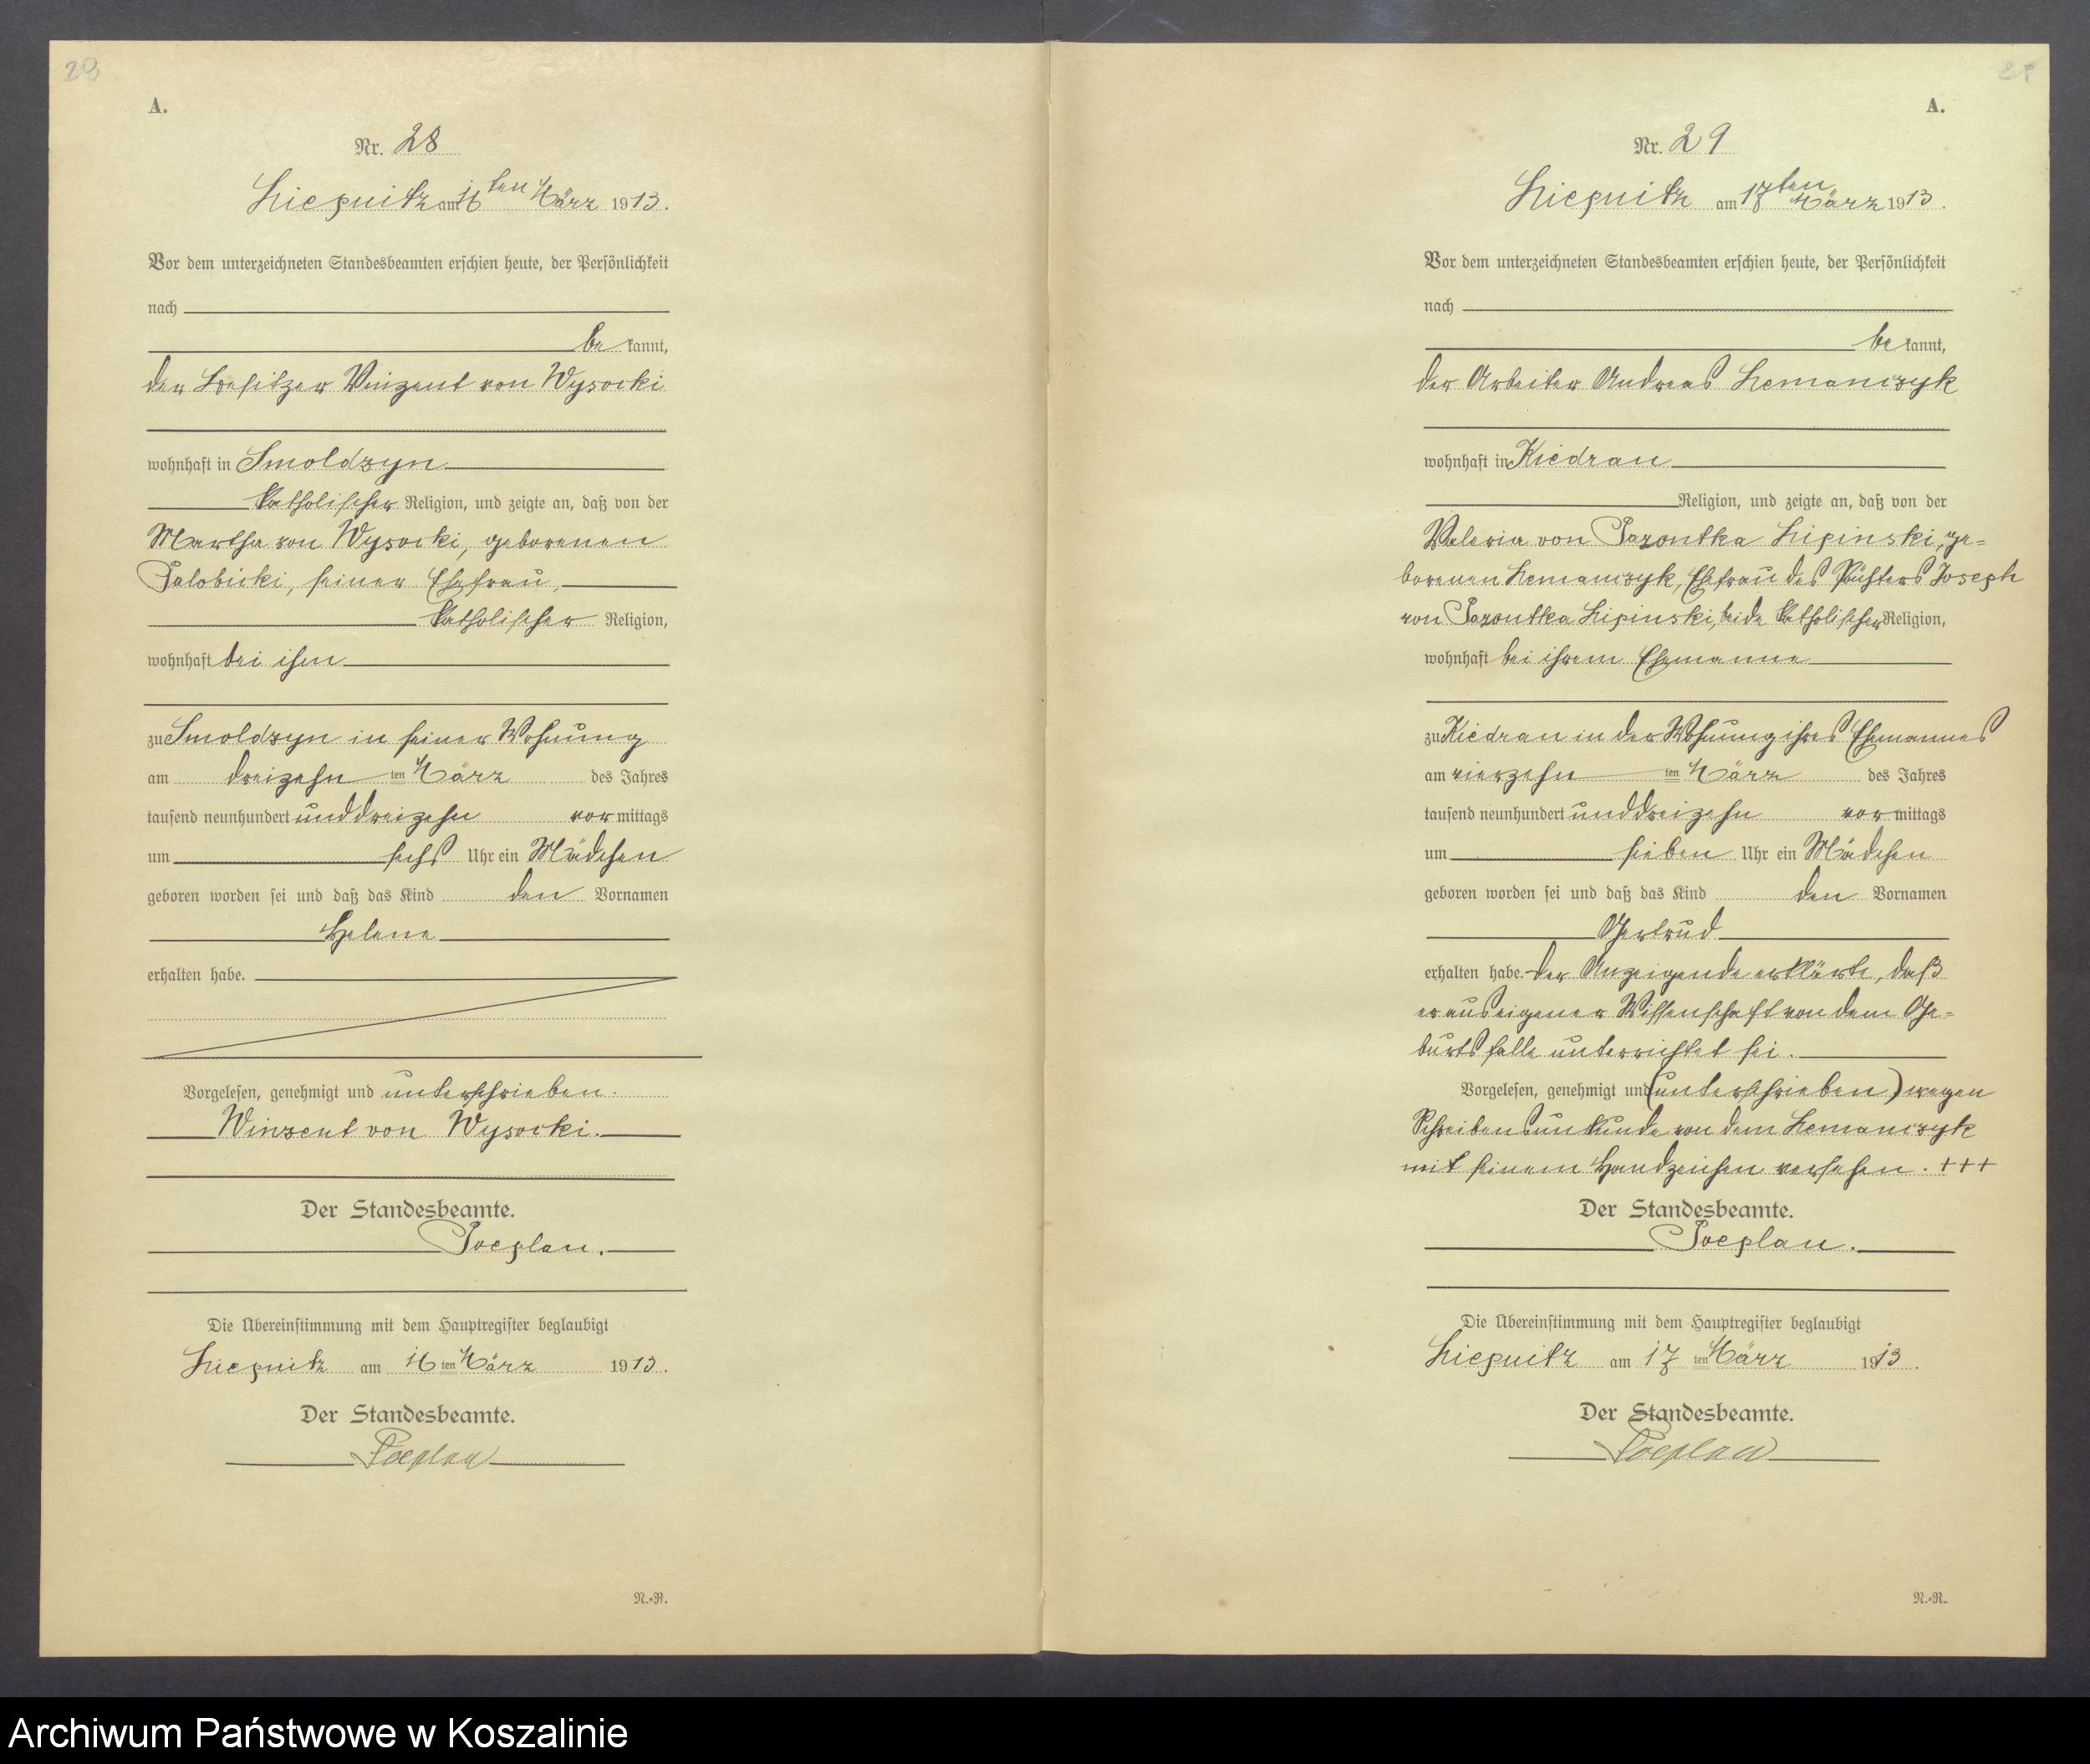 29
A.
Nr. 28
Liepnitz am 16ten März 1913.
Vor dem unterzeichneten Standesbeamten erschien heute, der Persönlichkeit
nach
be kannt,
der Besitzer Vinzent von Wysocki
wohnhaft in Smoldzyn
katholischer Religion, und zeigte an, daß von der
Martha von Wysocki, geborenen
Palobicki, seiner Ehefrau,
katholischer Religion,
wohnhaft bei ihm
zu Smoldzyn in seiner Wohnung
am dreizehn ten März des Jahres
tausend neunhundert und dreizehn vor mittags
um sechs Uhr ein Mädchen
geboren worden sei und daß das Kind den Vornamen
Helene
erhalten habe.
Vorgelesen, genehmigt und unterschrieben.
Winzent von Wysocki.
Der Standesbeamte.
Poeplau.
Die Übereinstimmung mit dem Hauptregister beglaubigt
Liepnitz am 16 ten März 1913.
Der Standesbeamte.
Poeplau
N.-R.
A.
Nr. 29
Liepnitz am 17ten März 1913.
Vor dem unterzeichneten Standesbeamten erschien heute, der Persönlichkeit
nach
be kannt,
der Arbeiter Andreas Lemanczyk
wohnhaft in Kiedrau
Religion, und zeigte an, daß von der
Valeria von Pazontka Lipinski, ge-
borenen Lemanczyk, Ehefrau des Pächters Joseph
von Pazontka Lipinski, beide katholischer Religion,
wohnhaft bei ihrem Ehemanne
zu Kiedrau in der Wohnung ihres Ehemannes
am vierzehn ten März des Jahres
tausend neunhundert und dreizehn vor mittags
um sieben Uhr ein Mädchen
geboren worden sei und daß das Kind den Vornamen
Gertrud
erhalten habe. Der Anzeigende erklärte, daß
er aus eigener Wissenschaft von dem Ge-
burtsfalle unterrichtet sei.
Vorgelesen, genehmigt und (unterschrieben) wegen
Schreibensunkunde von dem Lemanczyk
mit seinem Handzeichen versehen. +++
Der Standesbeamte.
Poeplau.
Die Übereinstimmung mit dem Hauptregister beglaubigt
Liepnitz am 17 ten März 1913.
Der Standesbeamte.
Poeplau
N.-R.
Archiwum Państwowe w Koszalinie